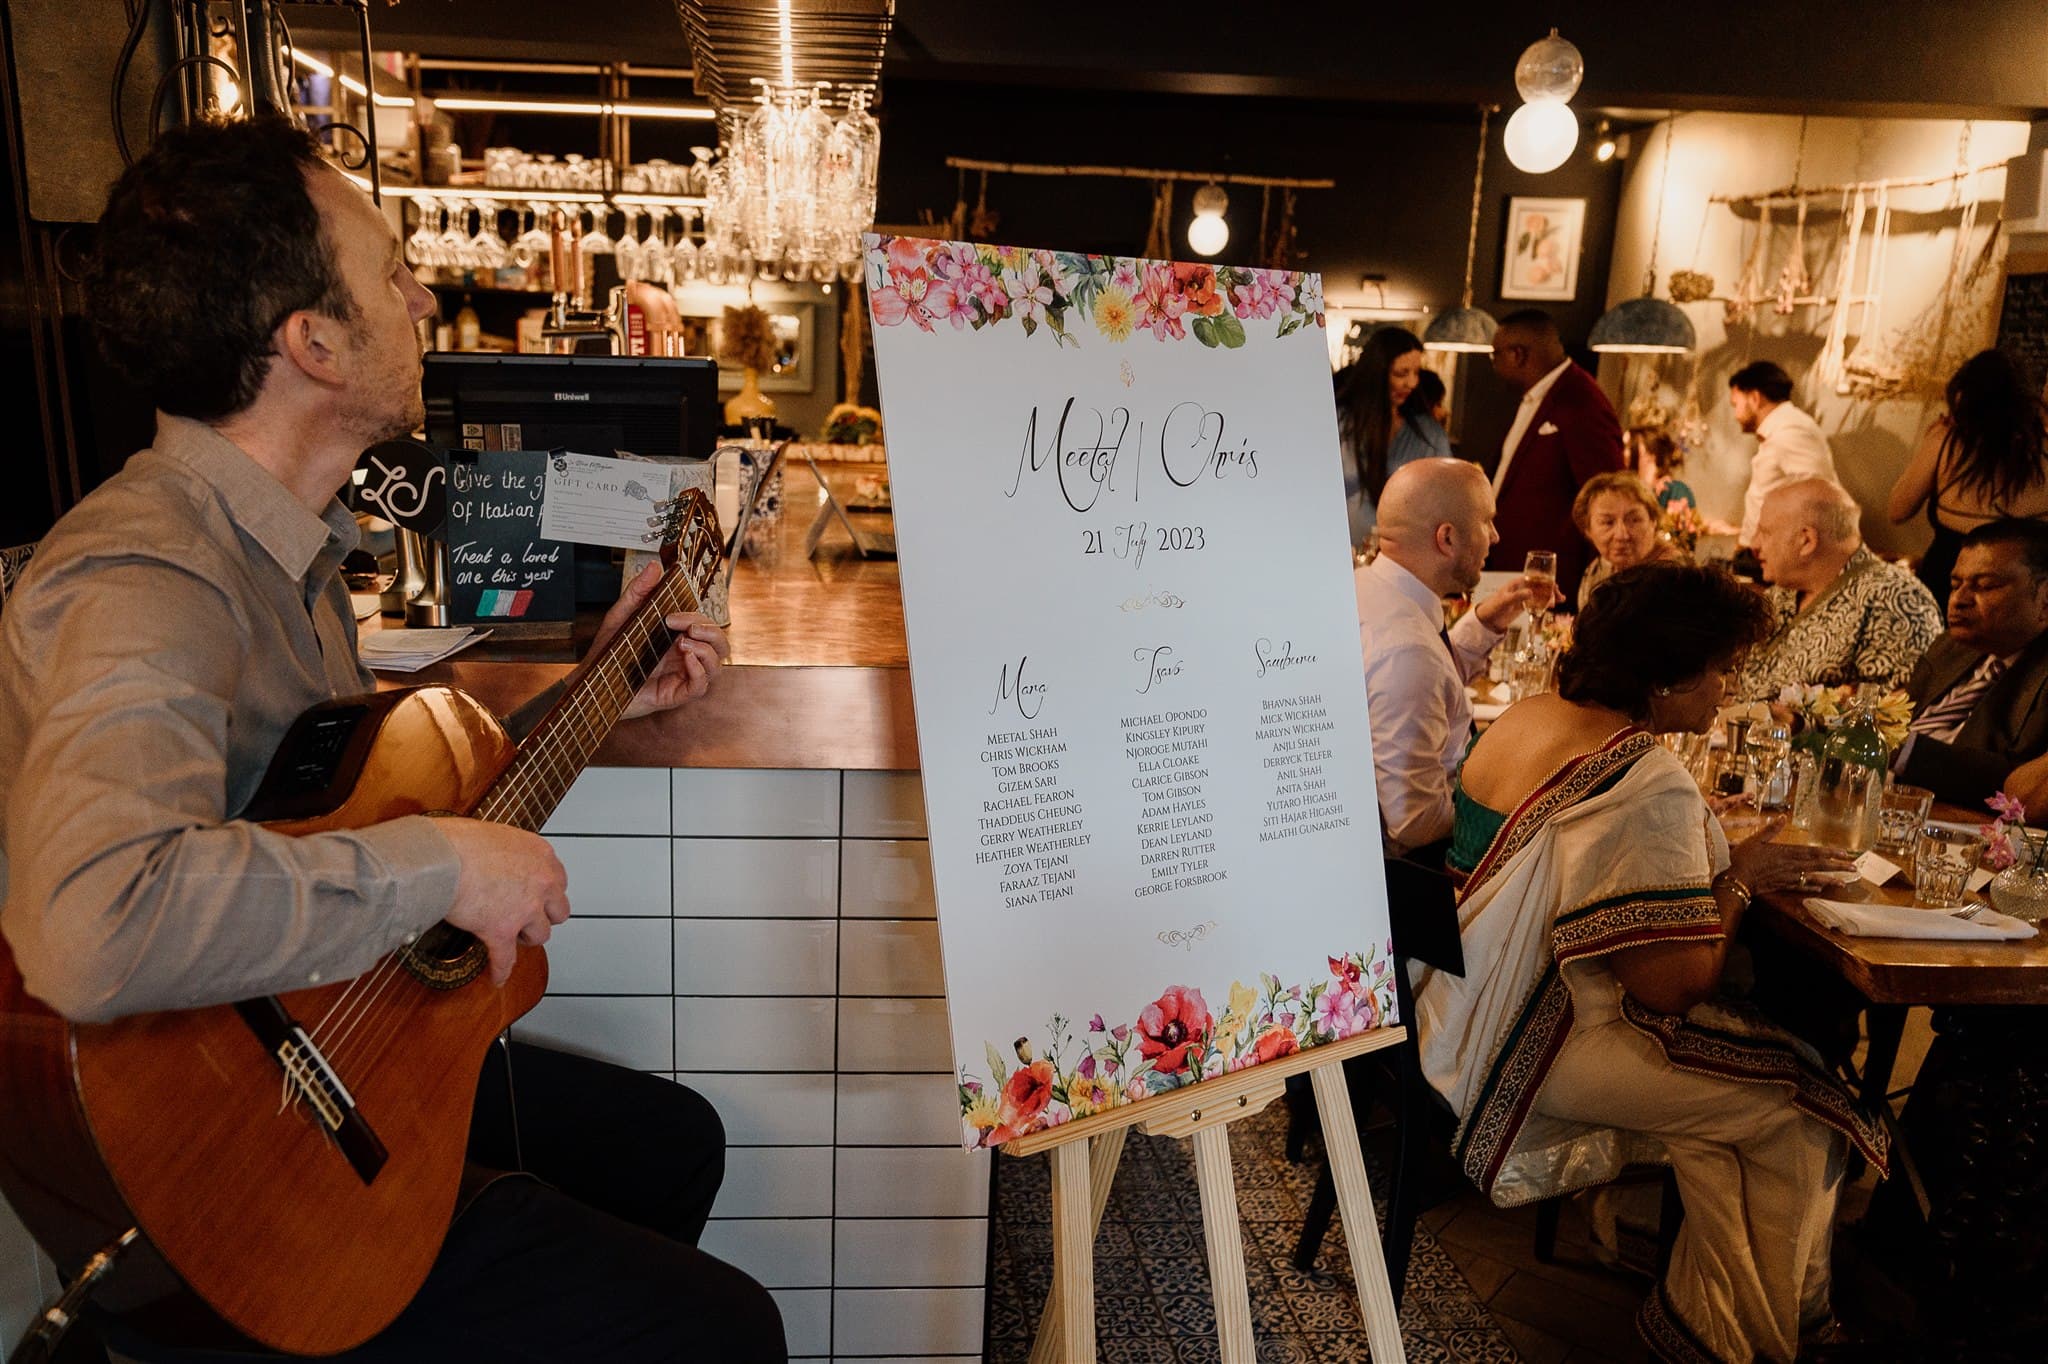 Uniwell
ZS
Give the g
Of Italian
Treat a loved
one this year
GIFT CARD
Meetal | Chris
21 July 2023
Mara
MEETAL SHAH
CHRIS WICKHAM
TOM BROOKS
GIZEM SARI
RACHAEL FEARON
THADDEUS CHEUNG
GERRY WEATHERLEY
HEATHER WEATHERLEY
ZOYA TEJANI
FARAAZ TEJANI
SIANA TEJANI
Tsavo
MICHAEL OPONDO
KINGSLEY KIPURY
NJOROGE MUTAHI
ELLA CLOAKE
CLARICE GIBSON
TOM GIBSON
ADAM HAYLES
KERRIE LEYLAND
DEAN LEYLAND
DARREN RUTTER
EMILY TYLER
GEORGE FORSBROOK
Samburu
BHAVNA SHAH
MICK WICKHAM
MARLYN WICKHAM
ANJLI SHAH
DERRYCK TELFER
ANIL SHAH
ANITA SHAH
YUTARO HIGASHI
SITI HAJAR HIGASHI
MALATHI GUNARATNE